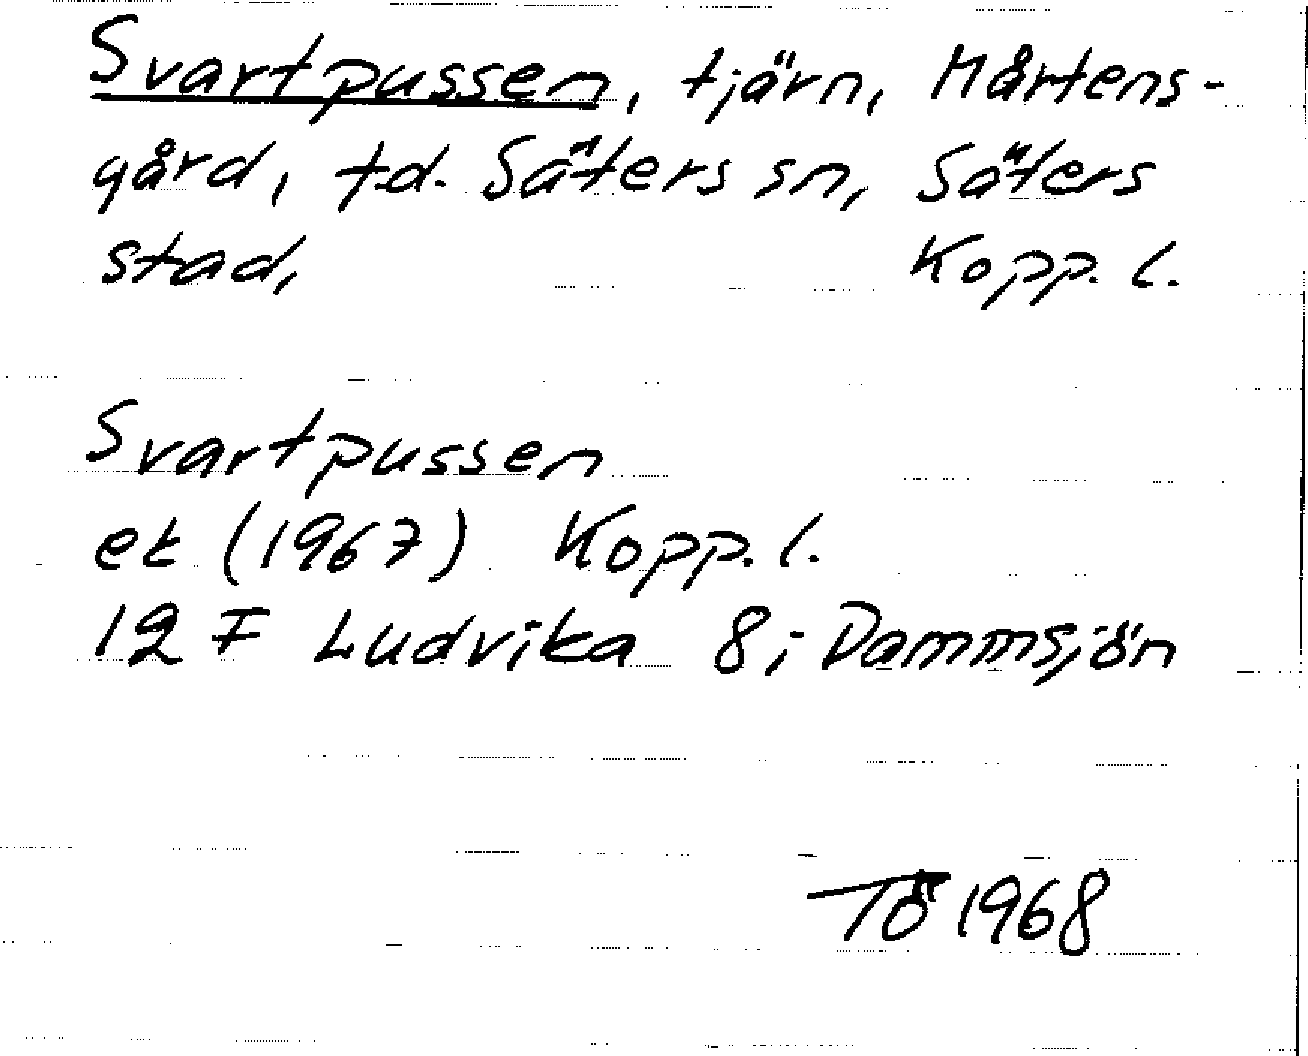 Svartpussen, tjärn, Mårtens-
gård, td. Säters sn, Säters
stad, Kopp. l.
Svartpussen
ek (1967) Kopp. l.
12 F Ludvika 8 i Dammsjön
TÖ 1968